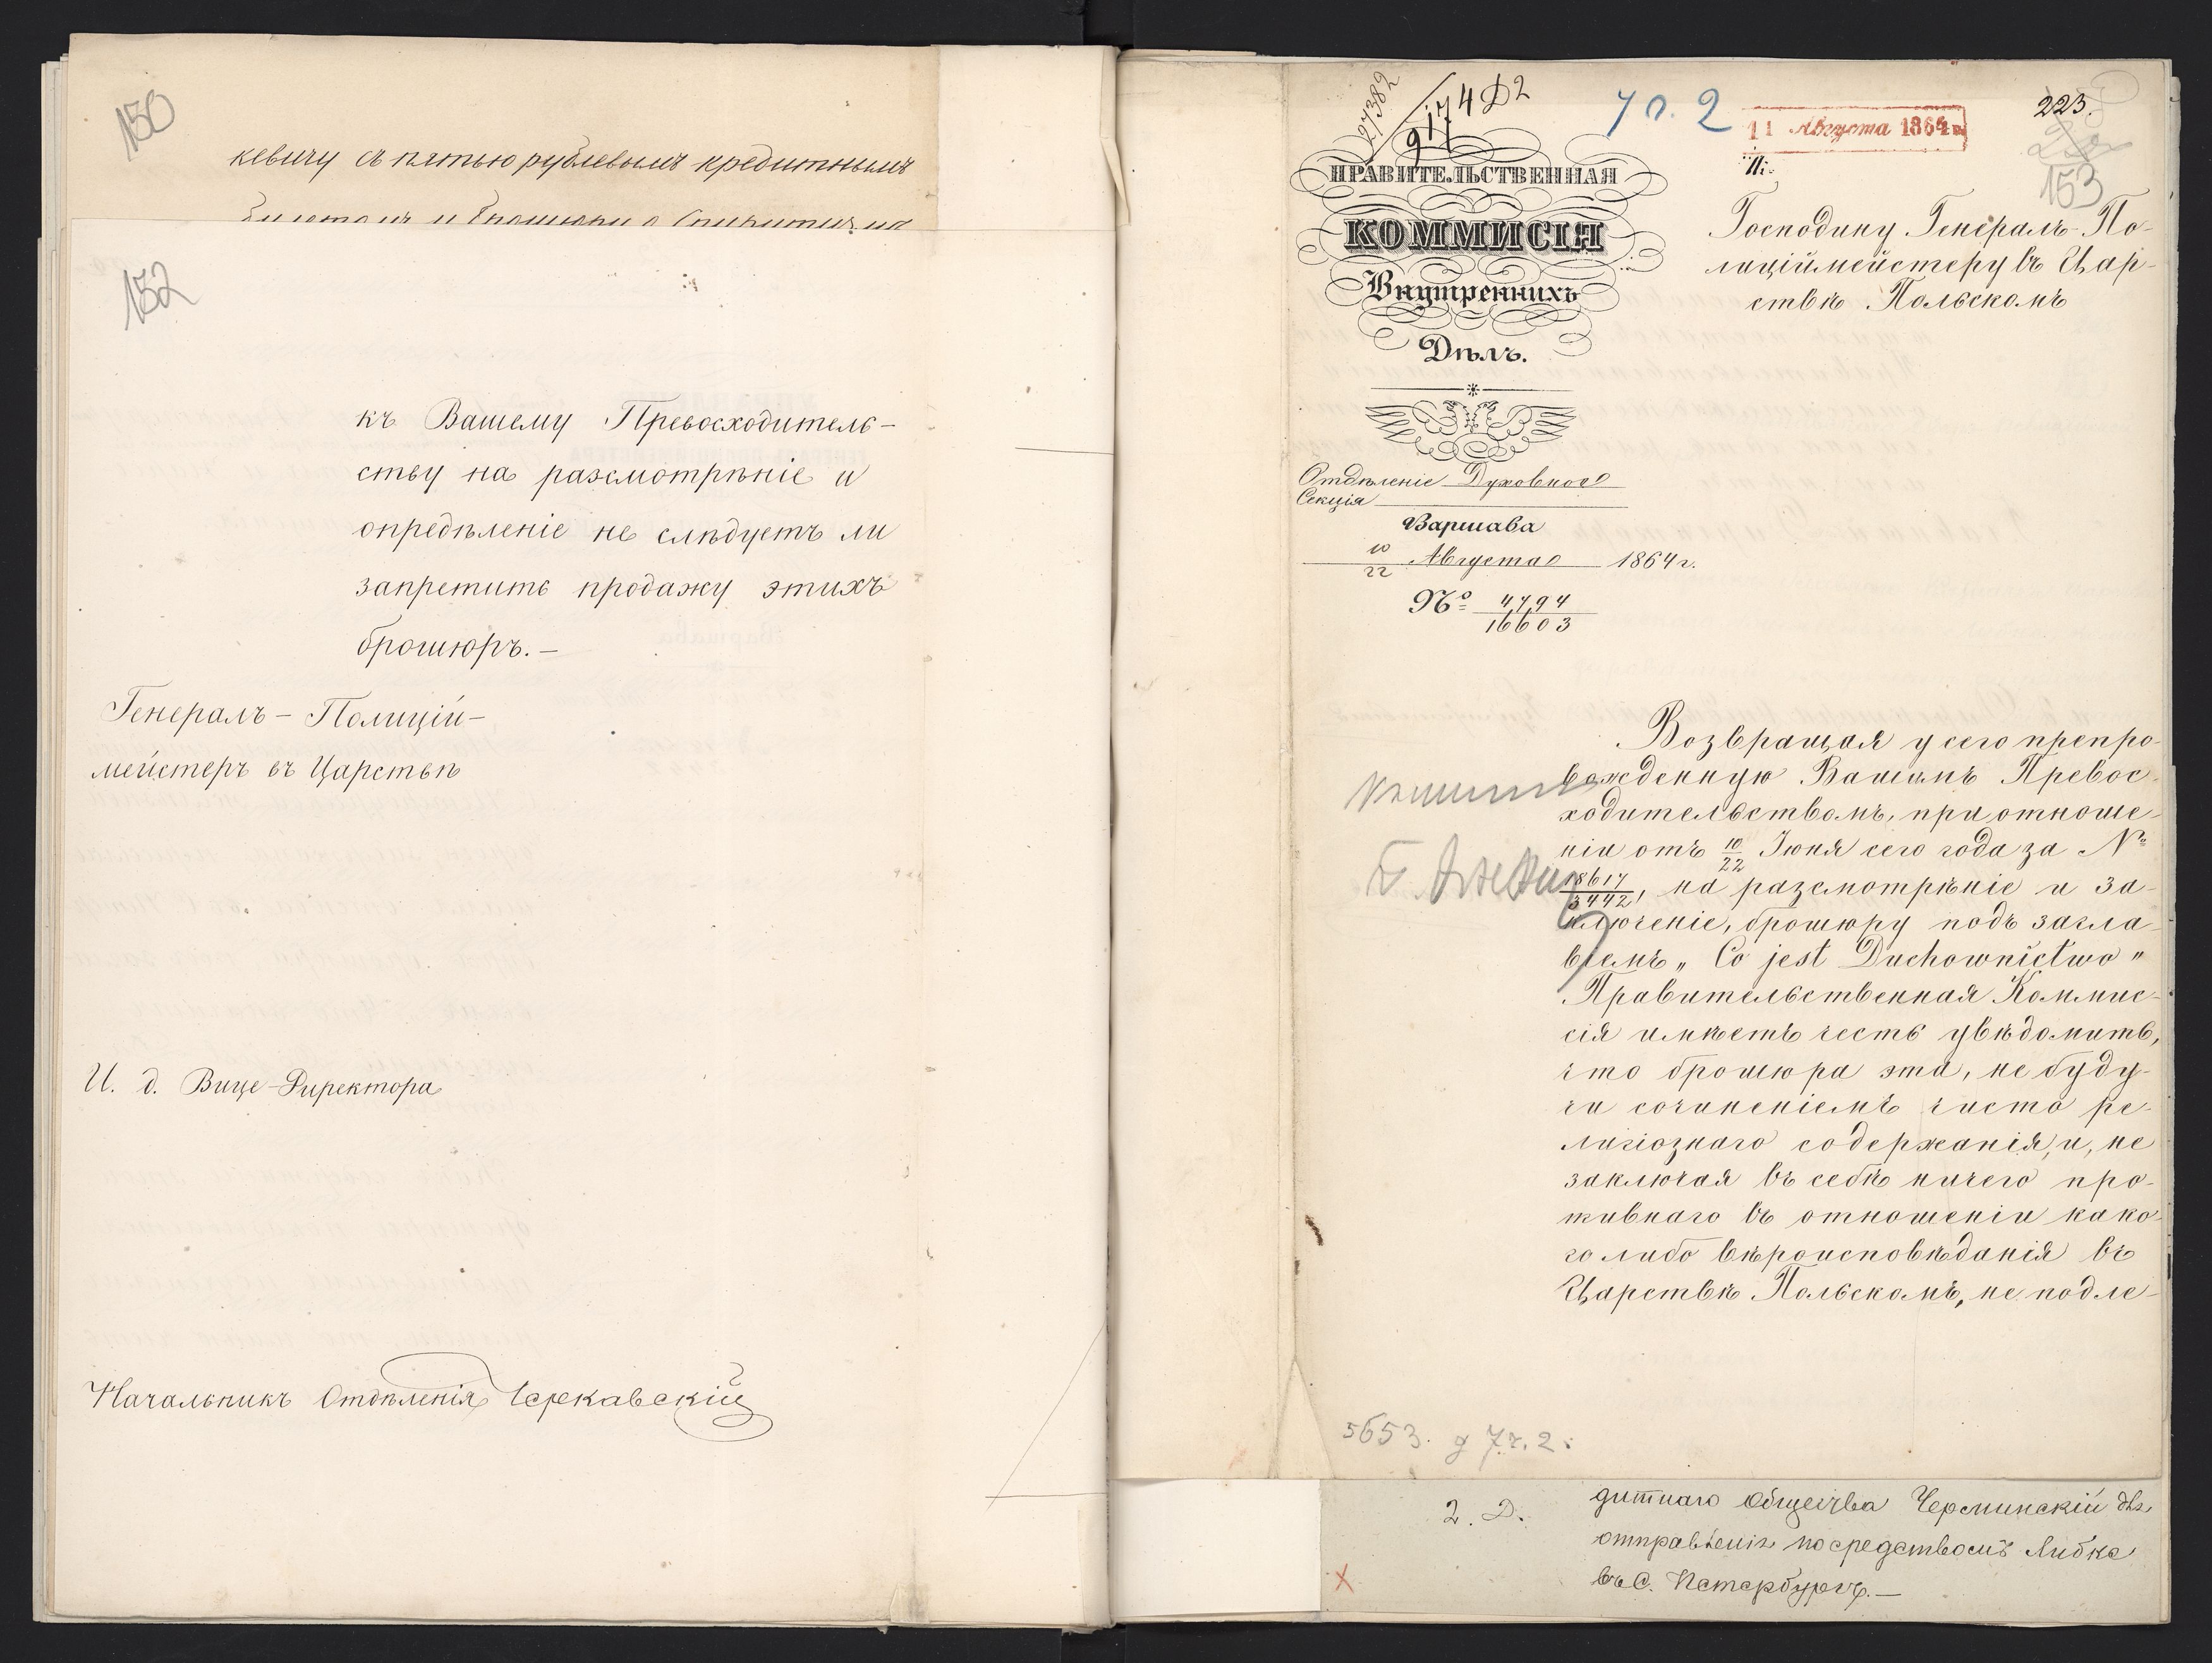 150
кевичу съ пятью рублевымъ кредитнымъ
152
къ Вашему Превосходитель-
ству на разсмотрѣніе и
опредѣленіе не слѣдуетъ ли
запретить продажу этихъ
брошюръ.—
Генералъ-Полицій-
мейстеръ въ Царствѣ
И. д. Вице-Директора
Начальникъ Отдѣленія Черкавскій
27382
917
4 Д2
7 ч. 2
11 Августа 1864
223.
153
ПРАВИТЕЛЬСТВЕННАЯ
КОММИСІЯ
Внутреннихъ
Дѣлъ.
Отдѣленіе Духовное
Секція
Варшава
10/22 Августа 1864 г.
№ 4794
16603
Господину Генералъ-По-
лиціймейстеру въ Цар-
ствѣ Польскомъ
Возвращая у сего препро-
вожденную Вашимъ Превос-
ходительствомъ, при отноше-
ніи отъ 10/22 Іюня сего года за №
18617/3442, на разсмотрѣніе и за-
ключеніе, брошюру подъ загла-
віемъ „Co jest Duchownictwo"
Правительственная Коммис-
сія имѣетъ честь увѣдомить,
что брошюра эта, не буду-
чи сочиненіемъ чисто ре-
лигіознаго содержанія, и, не
заключая въ себѣ ничего про-
тивнаго въ отношеніи како-
го либо вѣроисповѣданія въ
Царствѣ Польскомъ, не подле-
5653. д 7 ч. 2.
2. Д.
дитнаго Общества Черминскій для
отправленія посредствомъ Либке
въ С. Петербургъ.—